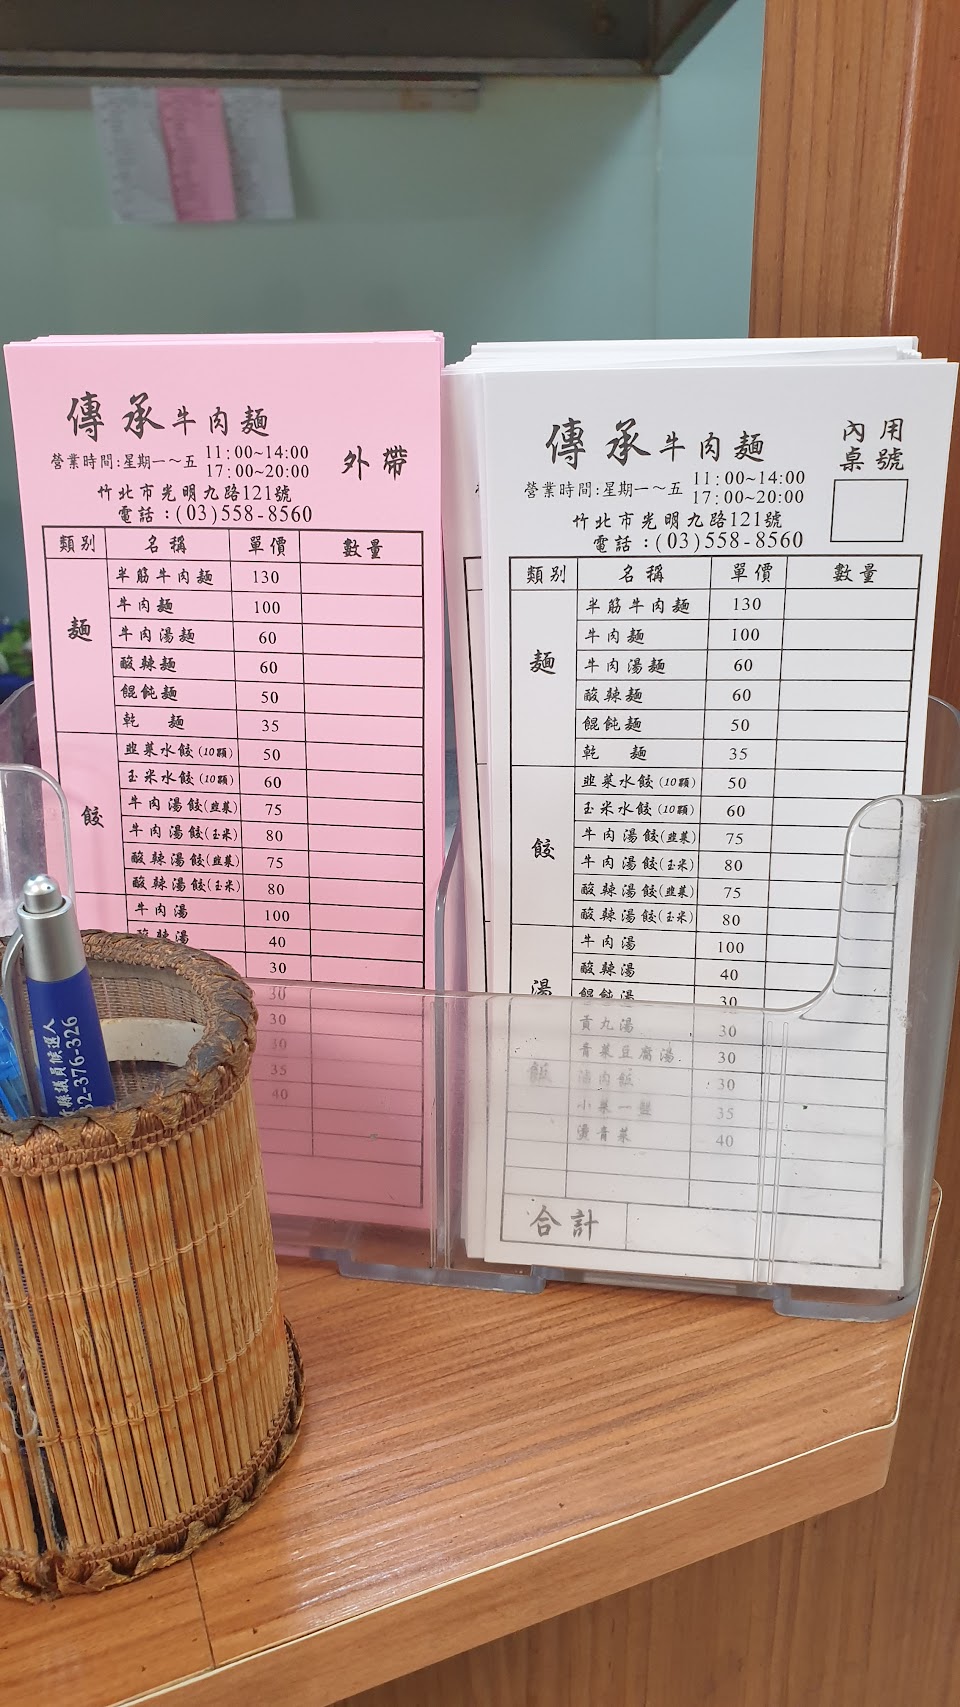 傳承牛肉麵
營業時間:星期一~五 11:00~14:00
17:00~20:00
外帶
竹北市光明九路121號
電話:(03)558-8560
類別 名稱 單價 數量
麵
半筋牛肉麵 130
牛肉麵 100
牛肉湯麵 60
酸辣麵 60
餛飩麵 50
乾 麵 35
餃
韭菜水餃(10顆) 50
玉米水餃(10顆) 60
牛肉湯餃(韭菜) 75
牛肉湯餃(玉米) 80
酸辣湯餃(韭菜) 75
酸辣湯餃(玉米) 80
牛肉湯 100
酸辣湯 40
30
30
30
30
35
40
傳承牛肉麵
營業時間:星期一~五 11:00~14:00
17:00~20:00
內用
桌號
竹北市光明九路121號
電話:(03)558-8560
類別 名稱 單價 數量
麵
半筋牛肉麵 130
牛肉麵 100
牛肉湯麵 60
酸辣麵 60
餛飩麵 50
乾 麵 35
餃
韭菜水餃(10顆) 50
玉米水餃(10顆) 60
牛肉湯餃(韭菜) 75
牛肉湯餃(玉米) 80
酸辣湯餃(韭菜) 75
酸辣湯餃(玉米) 80
湯
牛肉湯 100
酸辣湯 40
餛飩湯 30
貢丸湯 30
青菜豆腐湯 30
飯
滷肉飯 30
小菜一盤 35
燙青菜 40
合計
縣議員候選人
32-376-326